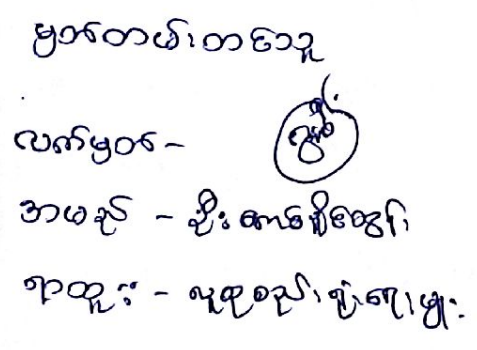 မှတ်တမ်းတင်သူ
လက်မှတ် -
အမည် - ဦးအောင်မျိုးထွန်း
ရာထူး - လူထုစည်းရုံးရေးမှူး